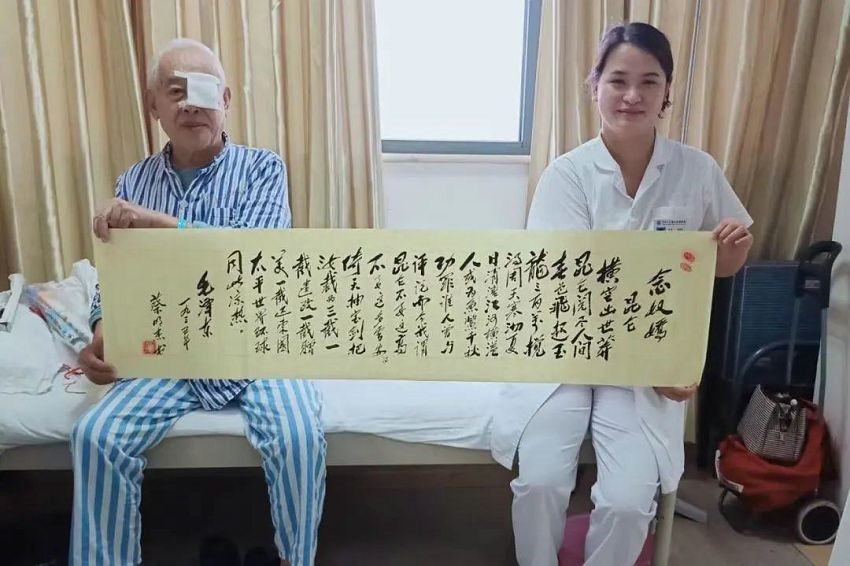 念奴嬌
昆仑
横空出世莽
昆仑阅尽人间
春色飛起玉
龍三百万搅
得周天寒彻夏
日消溶江河横溢
人或为魚鱉千秋
功罪谁人曾与
评说而今我谓
昆仑不要这高
不要这多雪安得
倚天抽宝剑把
汝裁为三截一
截遗欧一截赠
美一截还东國
太平世界环球
同此凉热
毛泽东
一九三五年
蔡 书